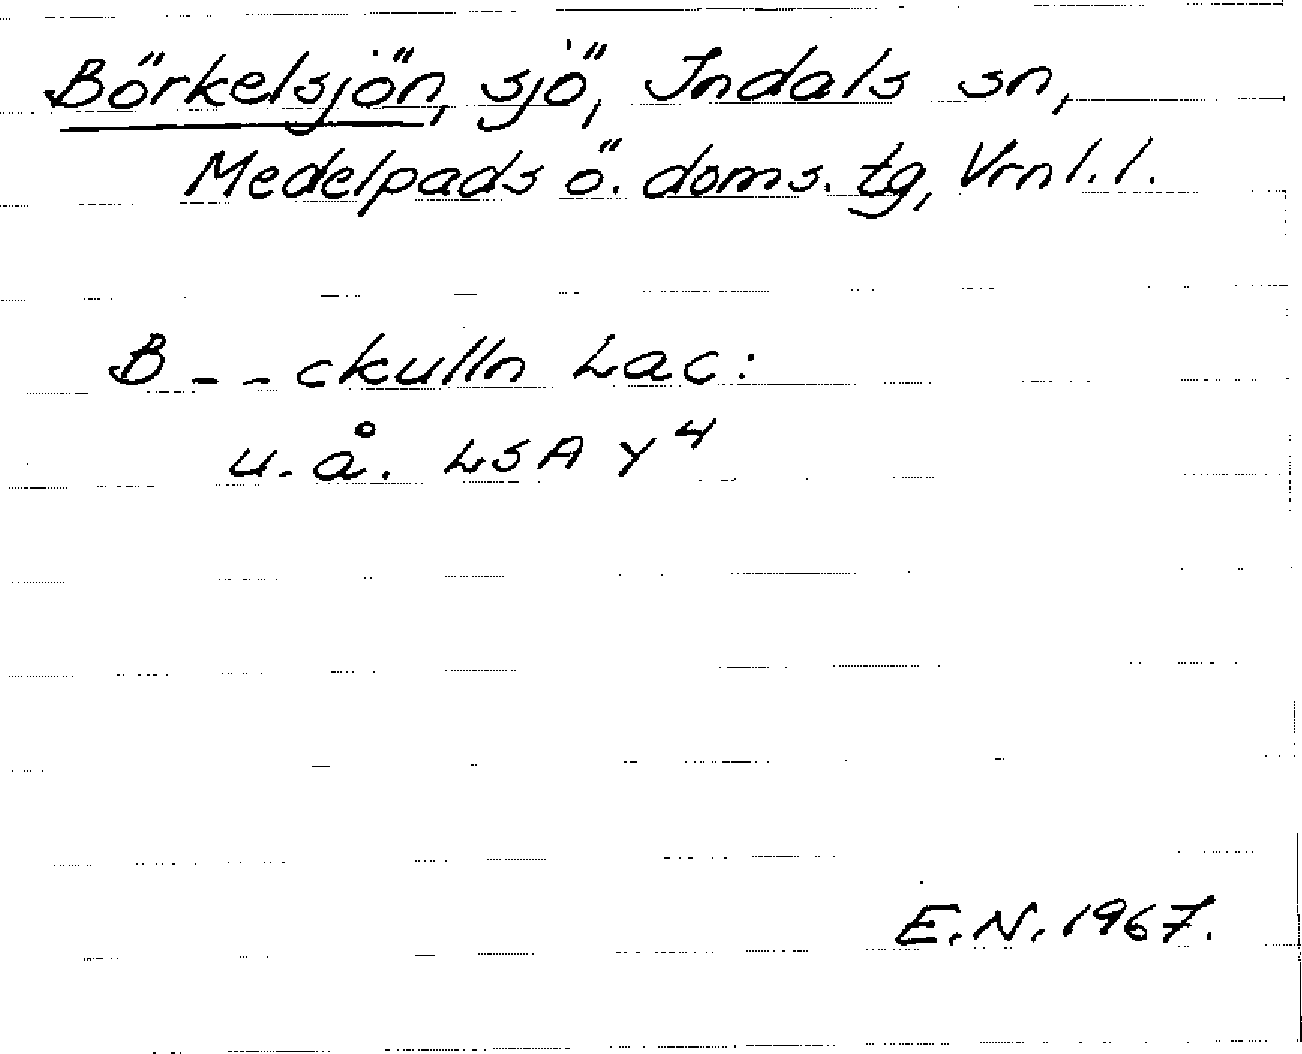 Börkelsjön, sjö, Indals sn,
Medelpads ö. doms. tg, Vrnl. l.
B _ _ ckulln Lac:
u. å. LSA Y⁴
E.N. 1967.